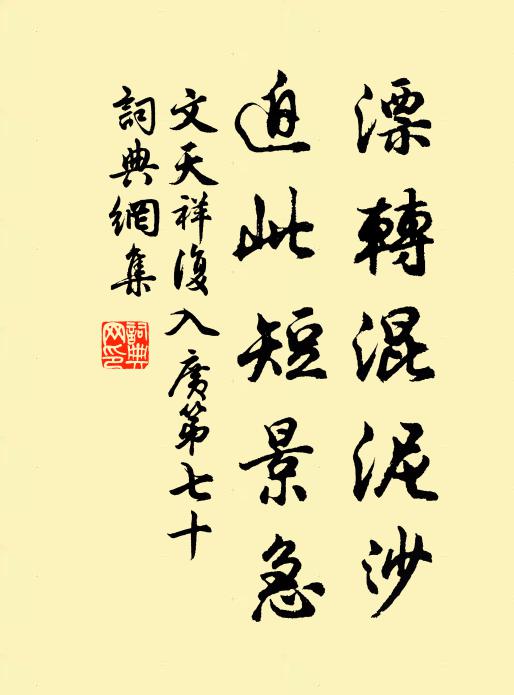 漂轉混泥沙
迫此短景急
文天祥復入廣第七十
詞典網集
詞典
网印